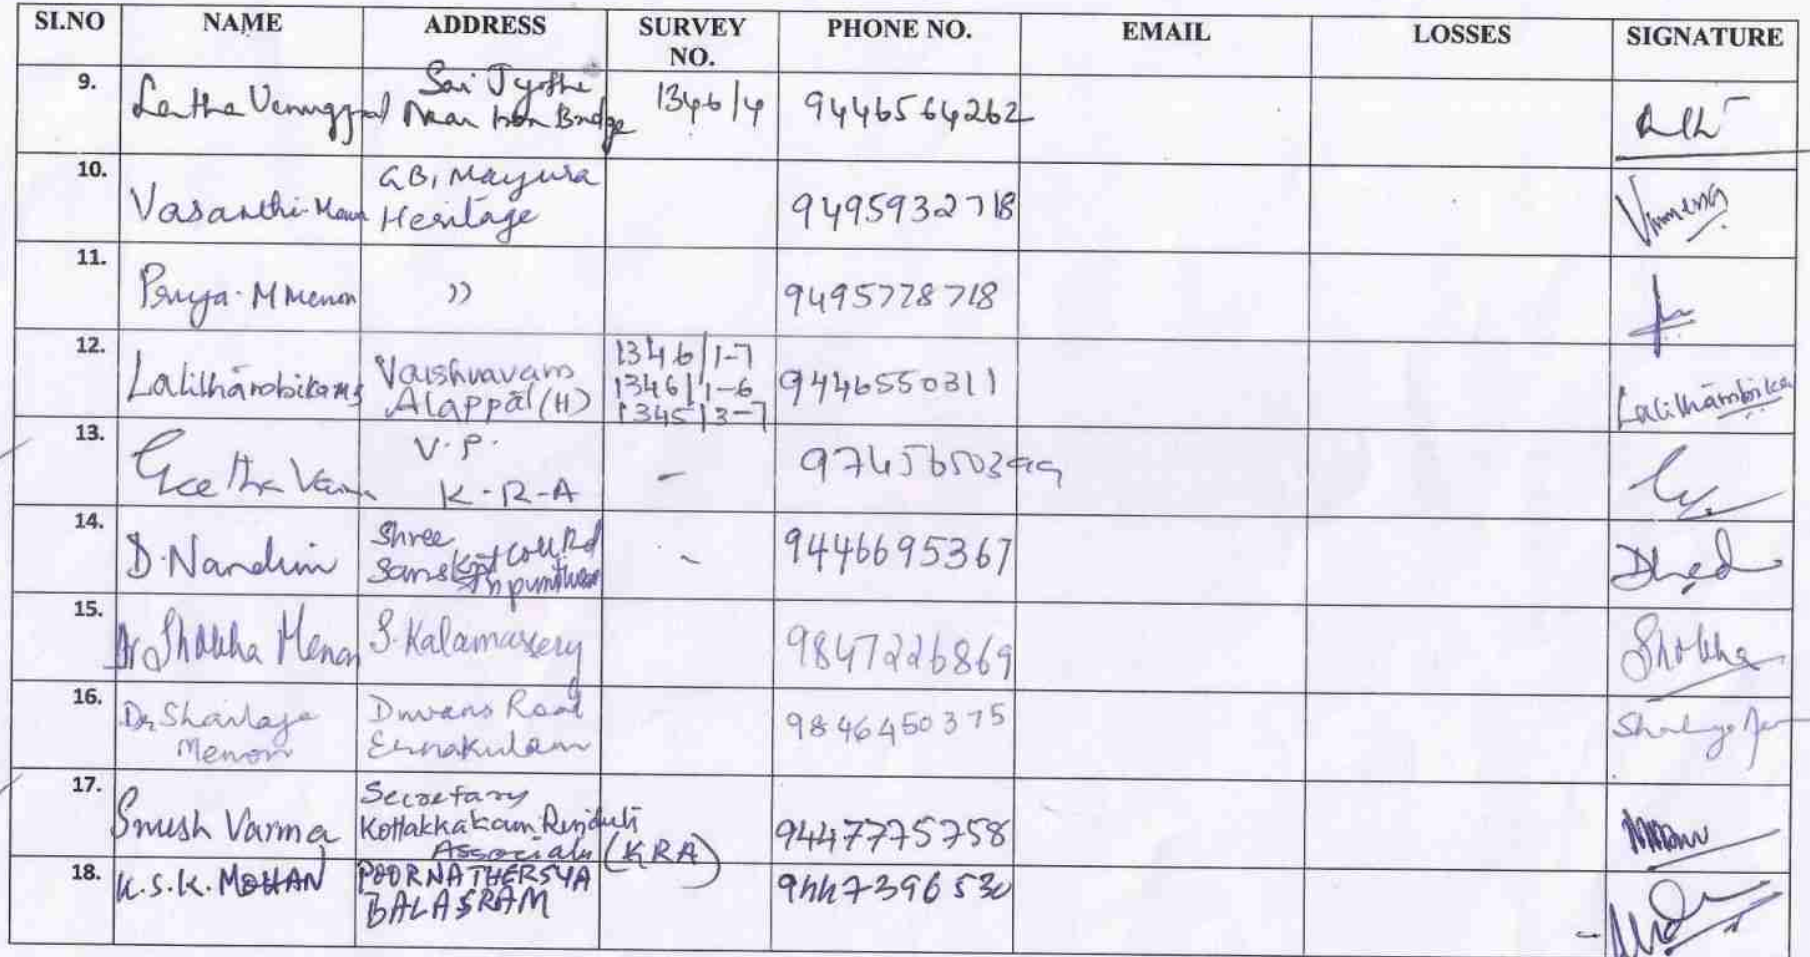 SI.NO NAME ADDRESS SURVEY NO. PHONE NO. EMAIL LOSSES SIGNATURE
9. Latha Venuggpal Sai Jyothi Near Iron Bridge 1346/4 9446564262
10. Vasanthi Menon GB, Mayura Heritage 9495932718 Vmenon
11. Priya. M Menon )) 9495778718
12. Lalithambika Vaishnavam Alappat (H) 1346/1-7 1346/1-6 1345/3-7 9446550311 Lalithambika
13. Geetha Varma V.P. K-R-A -
14. D. Nandini Shree Sanskrit Coll Rd - 9446695367
15. Dr Shobha Menon S. Kalamassery 9847226869 Shobha
16. Dr Shailaja Menon Diwans Road Ernakulam 9846450375
17. Varma Secretary Kottakkakam Residents Associatn (KRA) 9447775758
18. K.S.K. MOHAN POORNATHERSYA BALASRAM 9447396530